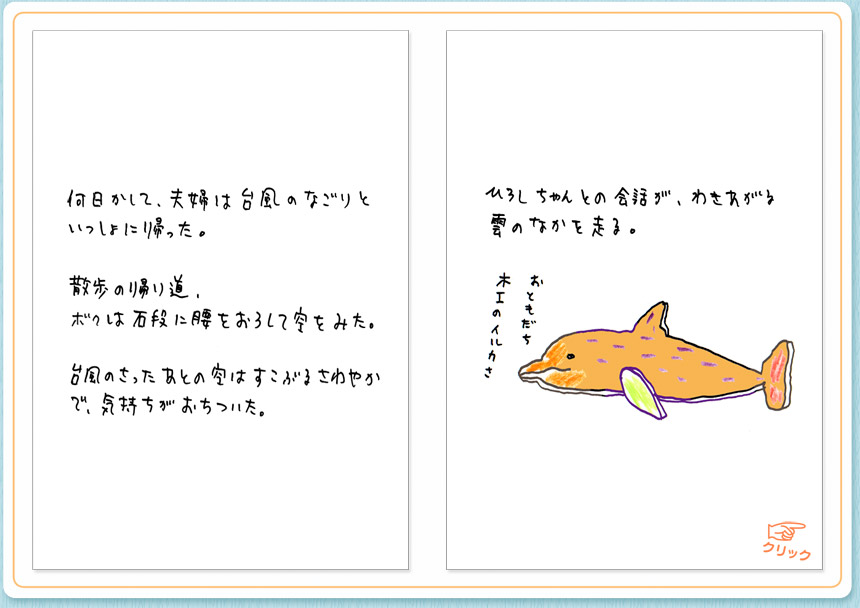 何日かして、夫婦は台風のなごりと
いっしょに帰った。
散歩の帰り道、
ボクは石段に腰をおろして空をみた。
台風のさったあとの空はすこぶるさわやか
で、気持ちがおちついた。
ひろしちゃんとの会話が、わきあがる
雲のなかを走る。
おともだち
木工のイルカさ
クリック